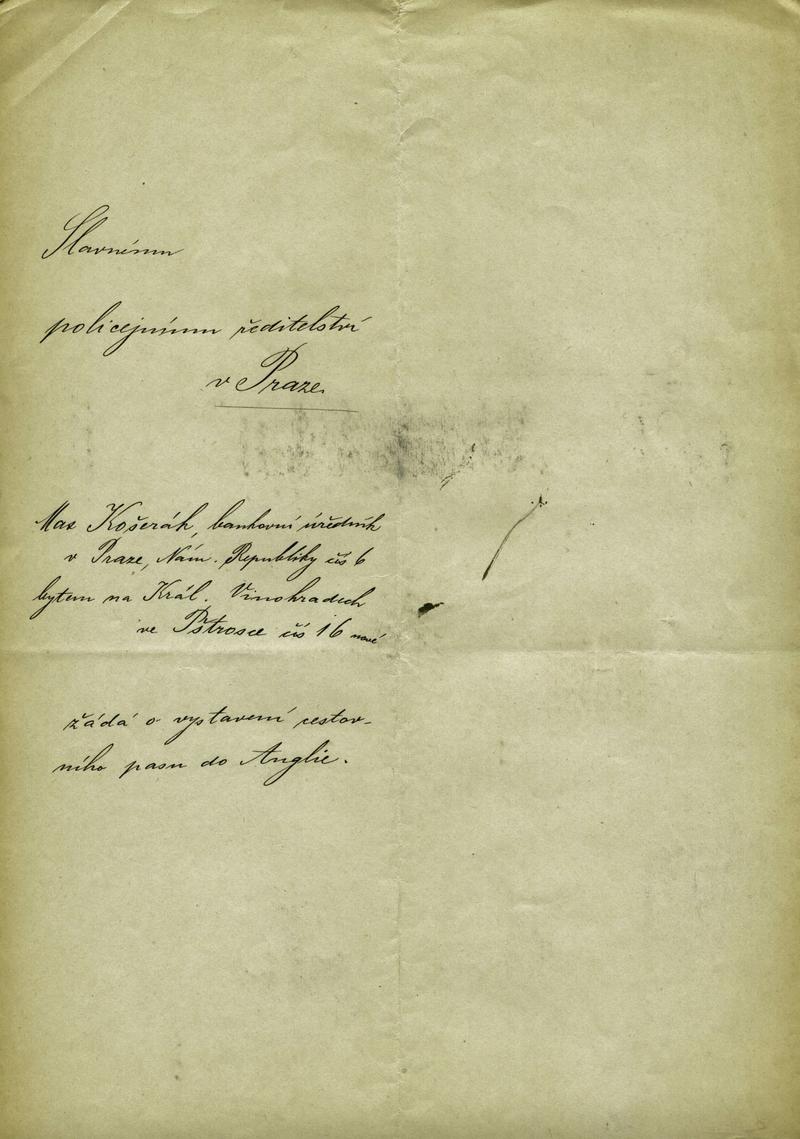 Slavnému
policejnímu ředitelství
v Praze.
Max Košerák, bankovní úředník
v Praze, Nám. Republiky čís 6
bytem na Král. Vinohradech
ve Pštrosce čís 16 nové
žádá o vystavení cestov-
ního pasu do Anglie.